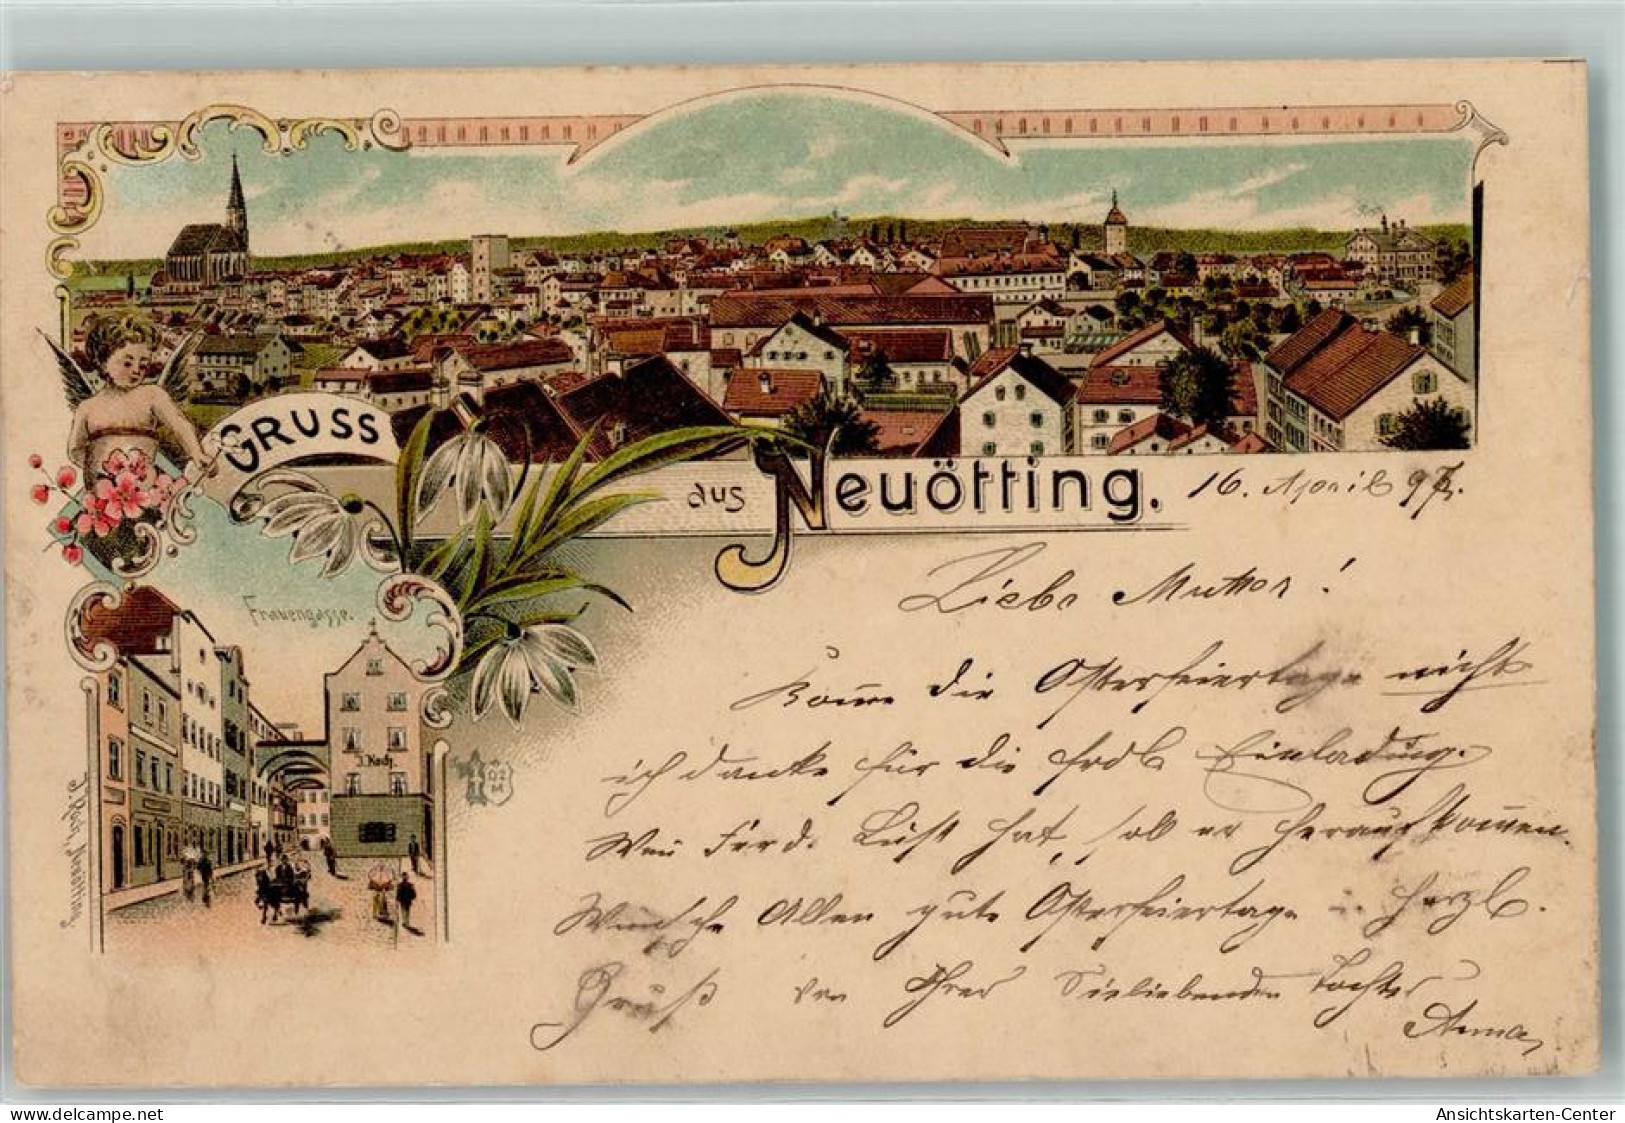 GRUSS
aus Neuötting.
16. April 97.
Frauengasse.
J. Koch.
Liebe Mutter!
Kom̄e die Osterfeiertage nicht
ich danke für die frdl Einladung.
Wen̄ Ferd. Lust hat, soll er heraufkom̄en.
Wünsche Allen gute Osterfeiertage u. herzl.
Gruß von Ihrer Sieliebenden Tochter
Anna,
oldthing.com
Ansichtskarten-Center